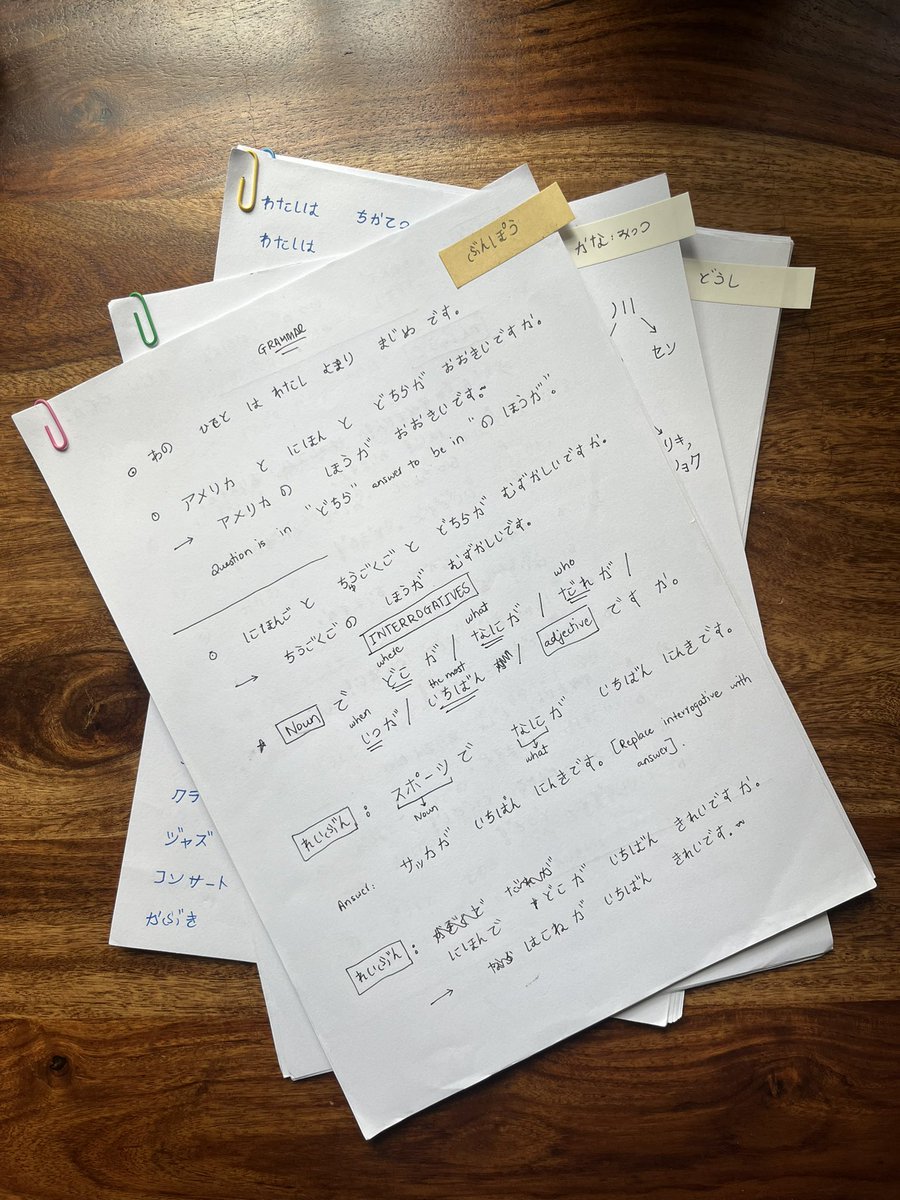 わたしは ちかてつ
わたしは
ぶんぽう
かな:みっつ
どうし
GRAMMAR
⊙ あの ひと は わたし より まじめ です。
⊙ アメリカ と にほん と どちらが おおきいですか。
→ アメリカの ほうが おおきいです。~
Question is in "どちら" answer to be in "の ほうが".
⊙ にほんごと ちゅうごくごと どちらが むずかしいですか。
→ ちうごくごの ほうが むずかしいです。
INTERROGATIVES
where what who
Noun で どこ が / なにが / だれが /
when the most
いつが / いちばん / adjective ですか。
れいぶん : スポーツで なにが いちばん にんきです。
Noun what
Answer: サッカが いちばん にんきです。 [Replace interrogative with answer].
れいぶん : だれが
にほんで どこが いちばん きれいですか。
→ はこねが いちばん きれいです。~
セン
リキ,
ョク
クラ
ジャズ
コンサート
かぶき